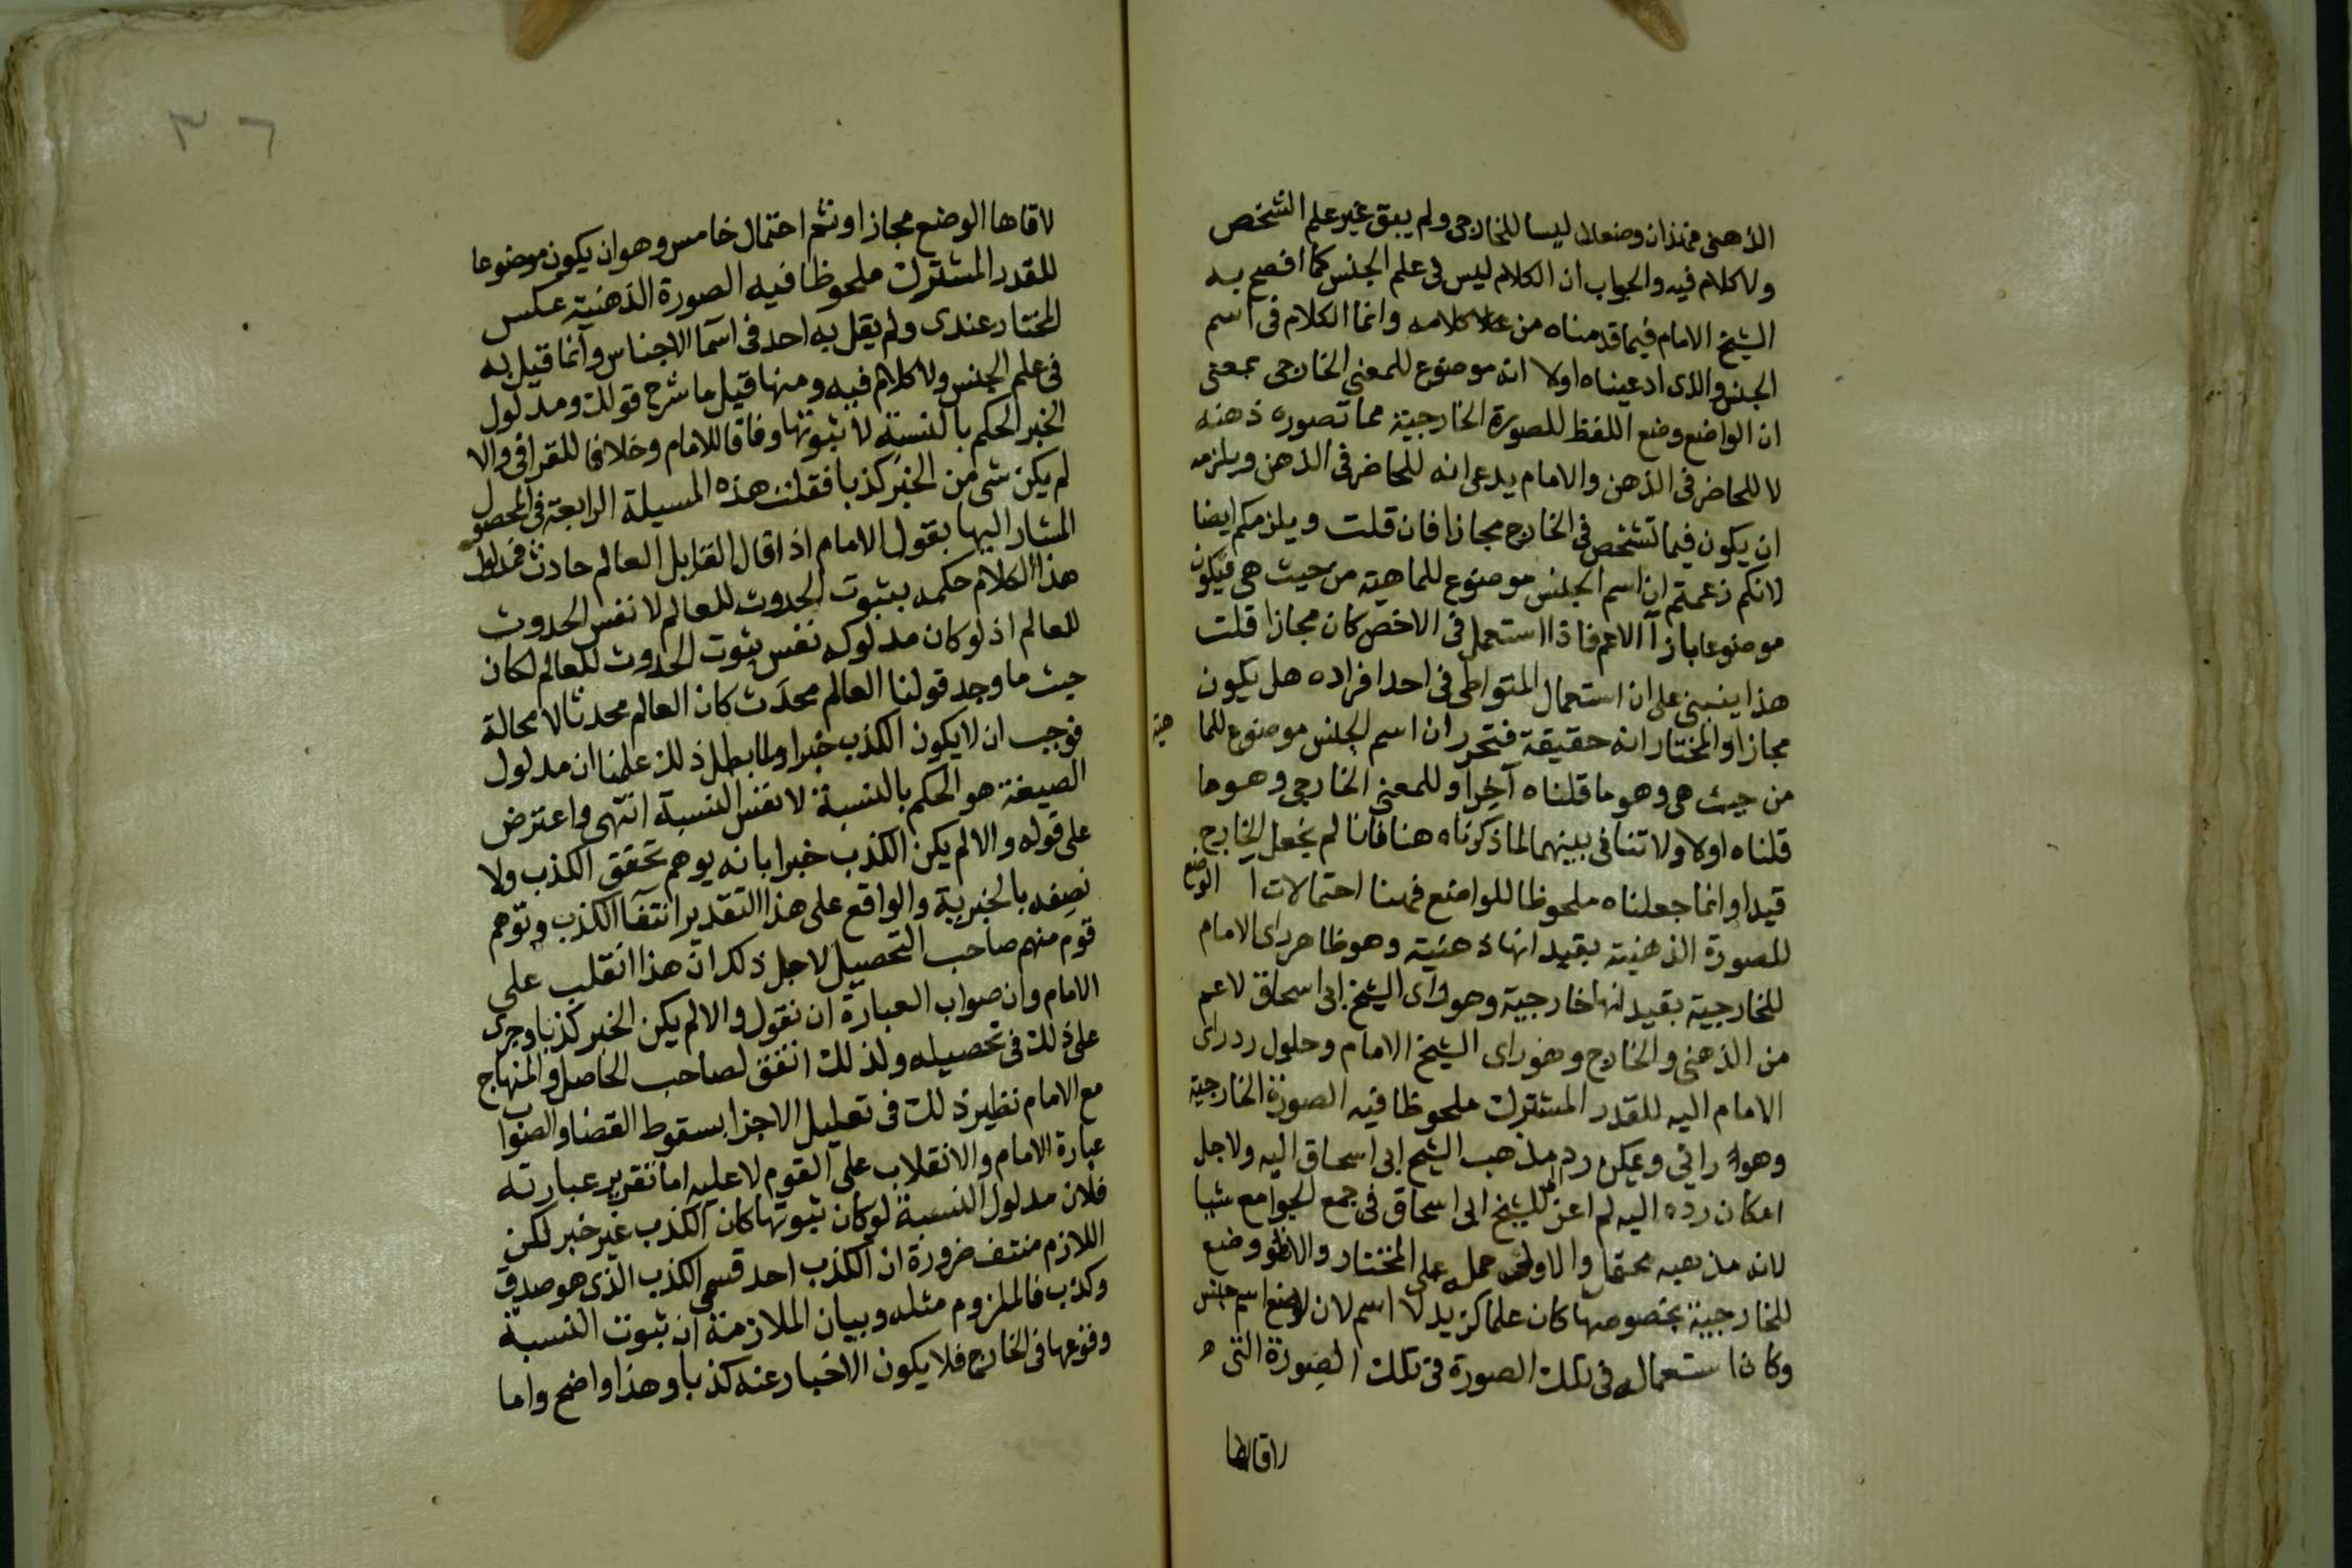 الذهنى فهذان وضعان ليسا للخارجى ولم يبق غير علم الشخص
ولا كلام فيه والجواب ان الكلام ليس فى علم الجنس كما افصح به
الشيخ الامام فيما قدمناه من كلامه وانما الكلام فى اسم
الجنس والذى ادعيناه اولا انه موضوع للمعنى الخارجى بمعنى
ان الواضع وضع اللفظ للصورة الخارجية مما تصوره ذهنه
لا للحاضر فى الذهن والامام يدعى انه للحاضر فى الذهن ويلزمه
ان يكون فيما تشخص فى الخارج مجازا فان قلت ويلزمكم ايضا
لانكم زعمتم ان اسم الجنس موضوع للماهية من حيث هى فيكون
موضوعا بازآ الاعم فاذا استعمل فى الاخص كان مجازا قلت
هذا ينبنى على ان استعمال المتواطى فى احد افراده هل يكون
مجازا والمختار انه حقيقة فتحرر ان اسم الجنس موضوع للما هية
من حيث هى وهو ما قلناه آخرا وللمعنى الخارجى وهو ما
قلناه اولا ولا تنافى بينهما لما ذكرناه هنا فانا لم نجعل الخارج
قيدا وانما جعلناه ملحوظا للواضع فهنا احتمالات آ الوضع
للصورة الذهنية بقيد انها ذهنية وهو ظاهر راى الامام
للخارجية بقيد انها خارجية وهو راى الشيخ ابى اسحاق لاعم
من الذهنى والخارج وهو راى الشيخ الامام وحاول رد راى
الامام اليه للقدر المشترك ملحوظا فيه الصورة الخارجية
وهو رائى ويمكن رد مذهب الشيخ ابى اسحاق اليه ولاجل
امكان رده اليه لم اعز للشيخ ابى اسحاق فى جمع الجوامع شيا
لانه مذهبه محتمل والاولى حمله على المختار والا فلو وضع
للخارجية بخصوصها كان علما كزيد لا اسم لان لوضع اسم جنس
وكان استعماله فى تلك الصورة فى تلك الصورة التى
لاقاها
٣٦
لاقاها الوضع مجازا وثم احتمال خامس وهو ان يكون موضوعا
للقدر المشترك ملحوظا فيه الصورة الذهنية عكس
المختار عندى ولم يقل به احد فى اسما الاجناس وانما قيل به
فى علم الجنس ولا كلام فيه ومنها قيل ما شرح قولك ومدلول
الخبر الحكم بالنسبة لا ثبوتها وفاقا للامام وخلافا للقرافى والا
لم يكن شى من الخبر كذبا فقلت هذه المسيلة الرابعة فى المحصول
المشار اليها بقول الامام اذا قال القايل العالم حادث فمدلول
هذا الكلام حكمه بثبوت الحدوث للعالم لا نفس الحدوث
للعالم اذ لو كان مدلوله نفس ثبوت الحدوث للعالم لكان
حيث ما وجد قولنا العالم محدث كان العالم محدثا لا محالة
فوجب ان لا يكون الكذب خبرا ولما بطل ذلك علمنا ان مدلول
الصيغة هو الحكم بالنسبة لا نفس النسبة انتهى واعترض
على قوله والا لم يكن الكذب خبرا بانه يوهم تحقق الكذب ولا
نصفه بالخبرية والواقع على هذا التقدير انتفآ الكذب وتوهم
قوم منهم صاحب التحصيل لاجل ذلك ان هذا انقلب على
الامام وان صواب العبارة ان نقول والا لم يكن الخبر كذبا وجرى
على ذلك فى تحصيله ولذلك اتفق لصاحب الحاصل والمنهاج
مع الامام نظير ذلك فى تعليل الاجزا بسقوط القضا والصواب
عبارة الامام والانقلاب على القوم لا عليه اما تقرير عبارته
فلان مدلول النسبة لو كان ثبوتها كان الكذب غير خبر لكن
اللازم منتف ضرورة ان الكذب احد قسمى الكذب الذى هو صدق
وكذب فالملزوم مثله وبيان الملازمة ان ثبوت النسبة
وقوعها فى الخارج فلا يكون الاخبار عنه كذبا وهذا واضح واما